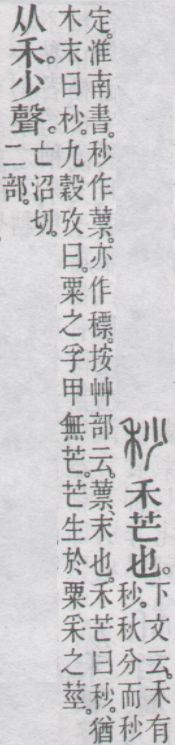 秒 禾芒也。
下文云。禾有
秒。秋分而秒
定。淮南書。秒作蔈。亦作䅺。按艸部云。蔈、末也。禾芒曰秒。猶
木末曰杪。九穀攷曰。粟之孚甲無芒。芒生於粟采之莖。
从禾少聲。
亡沼切。
二部。